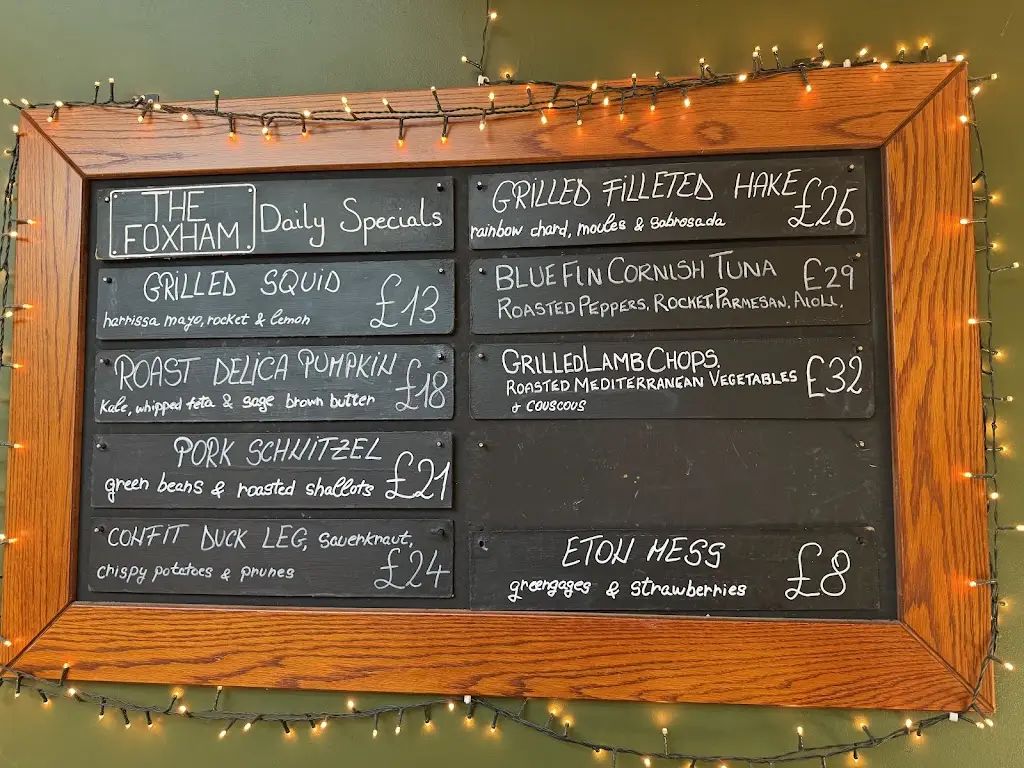 THE
FOXHAM
Daily Specials
GRILLED SQUID
£13
harrissa mayo, rocket & lemon
ROAST DELICA PUMPKIN
£18
Kale, whipped feta & sage brown butter
PORK SCHNITZEL
£21
green beans & roasted shallots
CONFIT DUCK LEG, sauerkraut,
£24
crispy potatoes & prunes
GRILLED FILLETED HAKE
£26
rainbow chard, moules & sobrasada
BLUE FIN CORNISH TUNA
£29
ROASTED PEPPERS, ROCKET, PARMESAN, AIOLI.
GRILLED LAMB CHOPS,
£32
ROASTED MEDITERRANEAN VEGETABLES
& COUSCOUS
ETON MESS
£8
greengages & strawberries